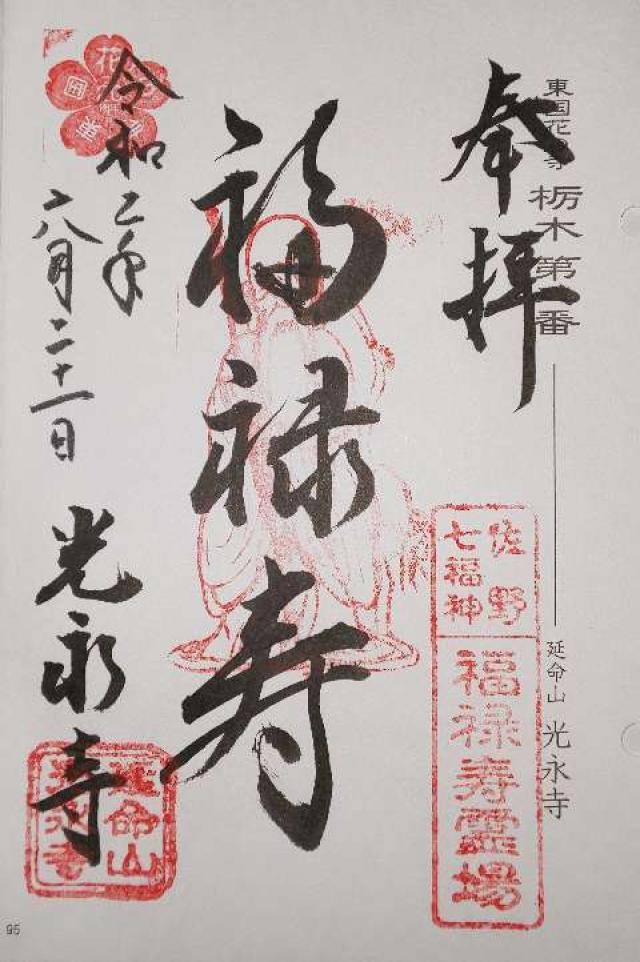 奉拝
東国花の寺
栃木第 番
延命山 光永寺
佐野
七福神
福禄寿霊場
福禄寿
令和二年
八月二十一日
光永寺
延命山
光永寺
95